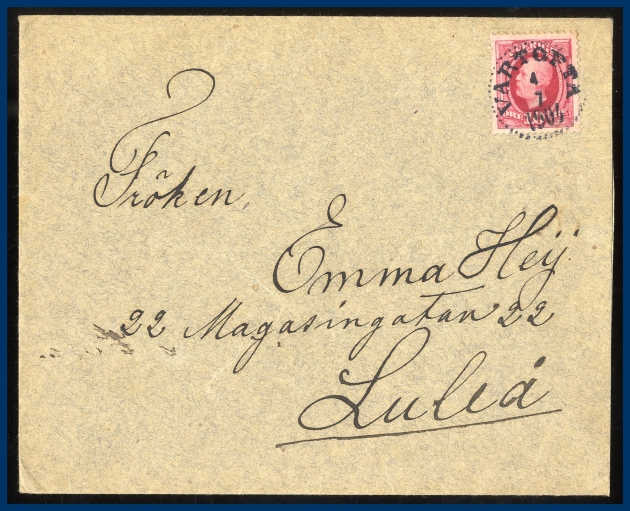 VARTOFTA
4
7
1904
Fröken
Emma Heij
22 Magasingatan 22
Luleå